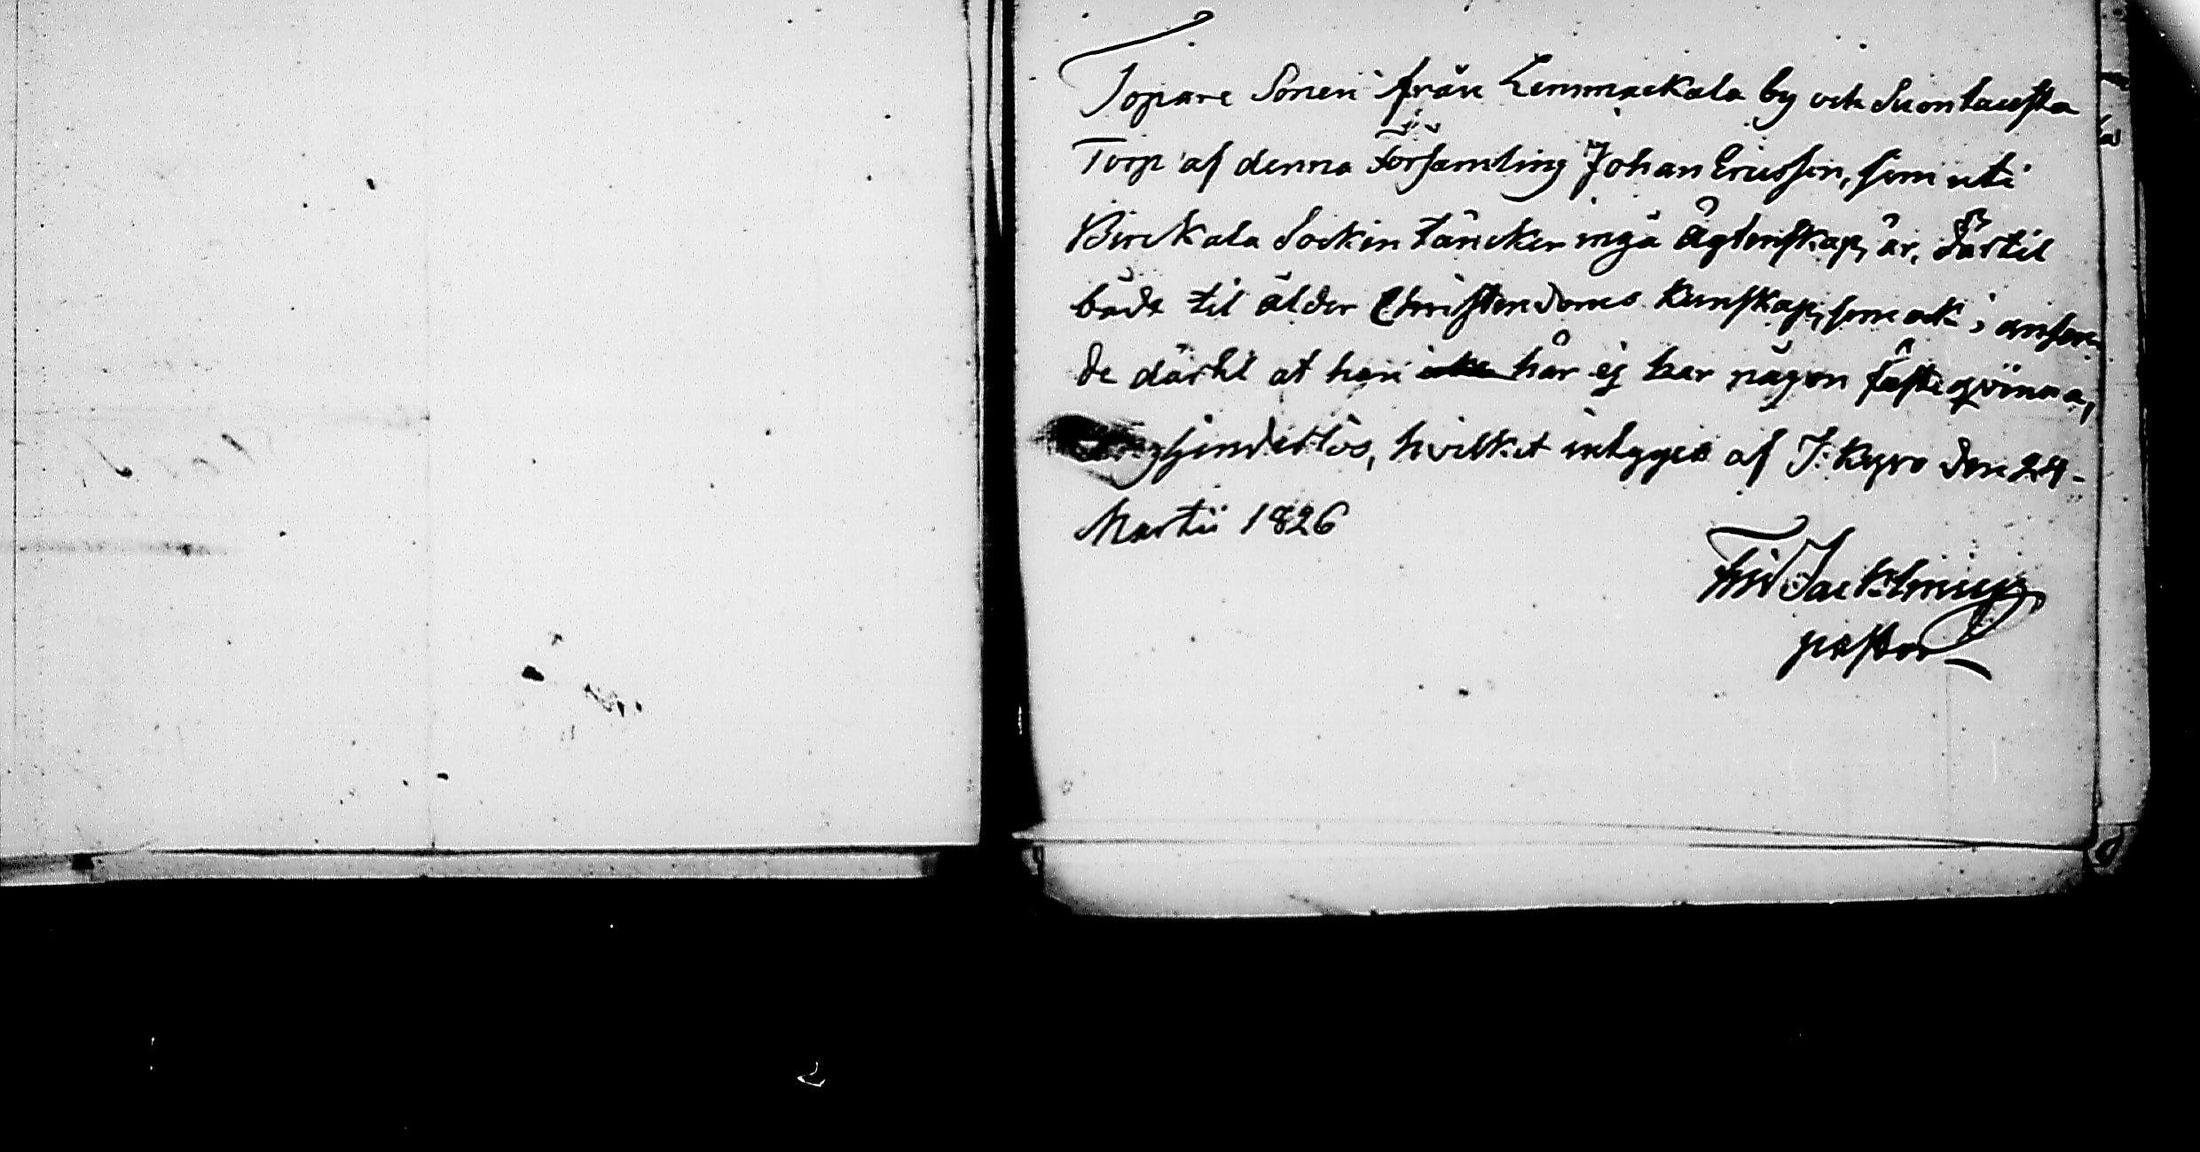 Torpare Sonen från Lemmackala by och Suontausta
Torp af denna Församling Johan Ericsson, som uti
Birckala Sockin täncker ingå Ägtenskap, är, därtil
både til ålder Christendoms kunskap, som ock i anseen
de därtil at han här ej har någon fästeqvinna,
hinderlös, hvilket intygges af J: Kyro den 24
Martii 1826
pastor